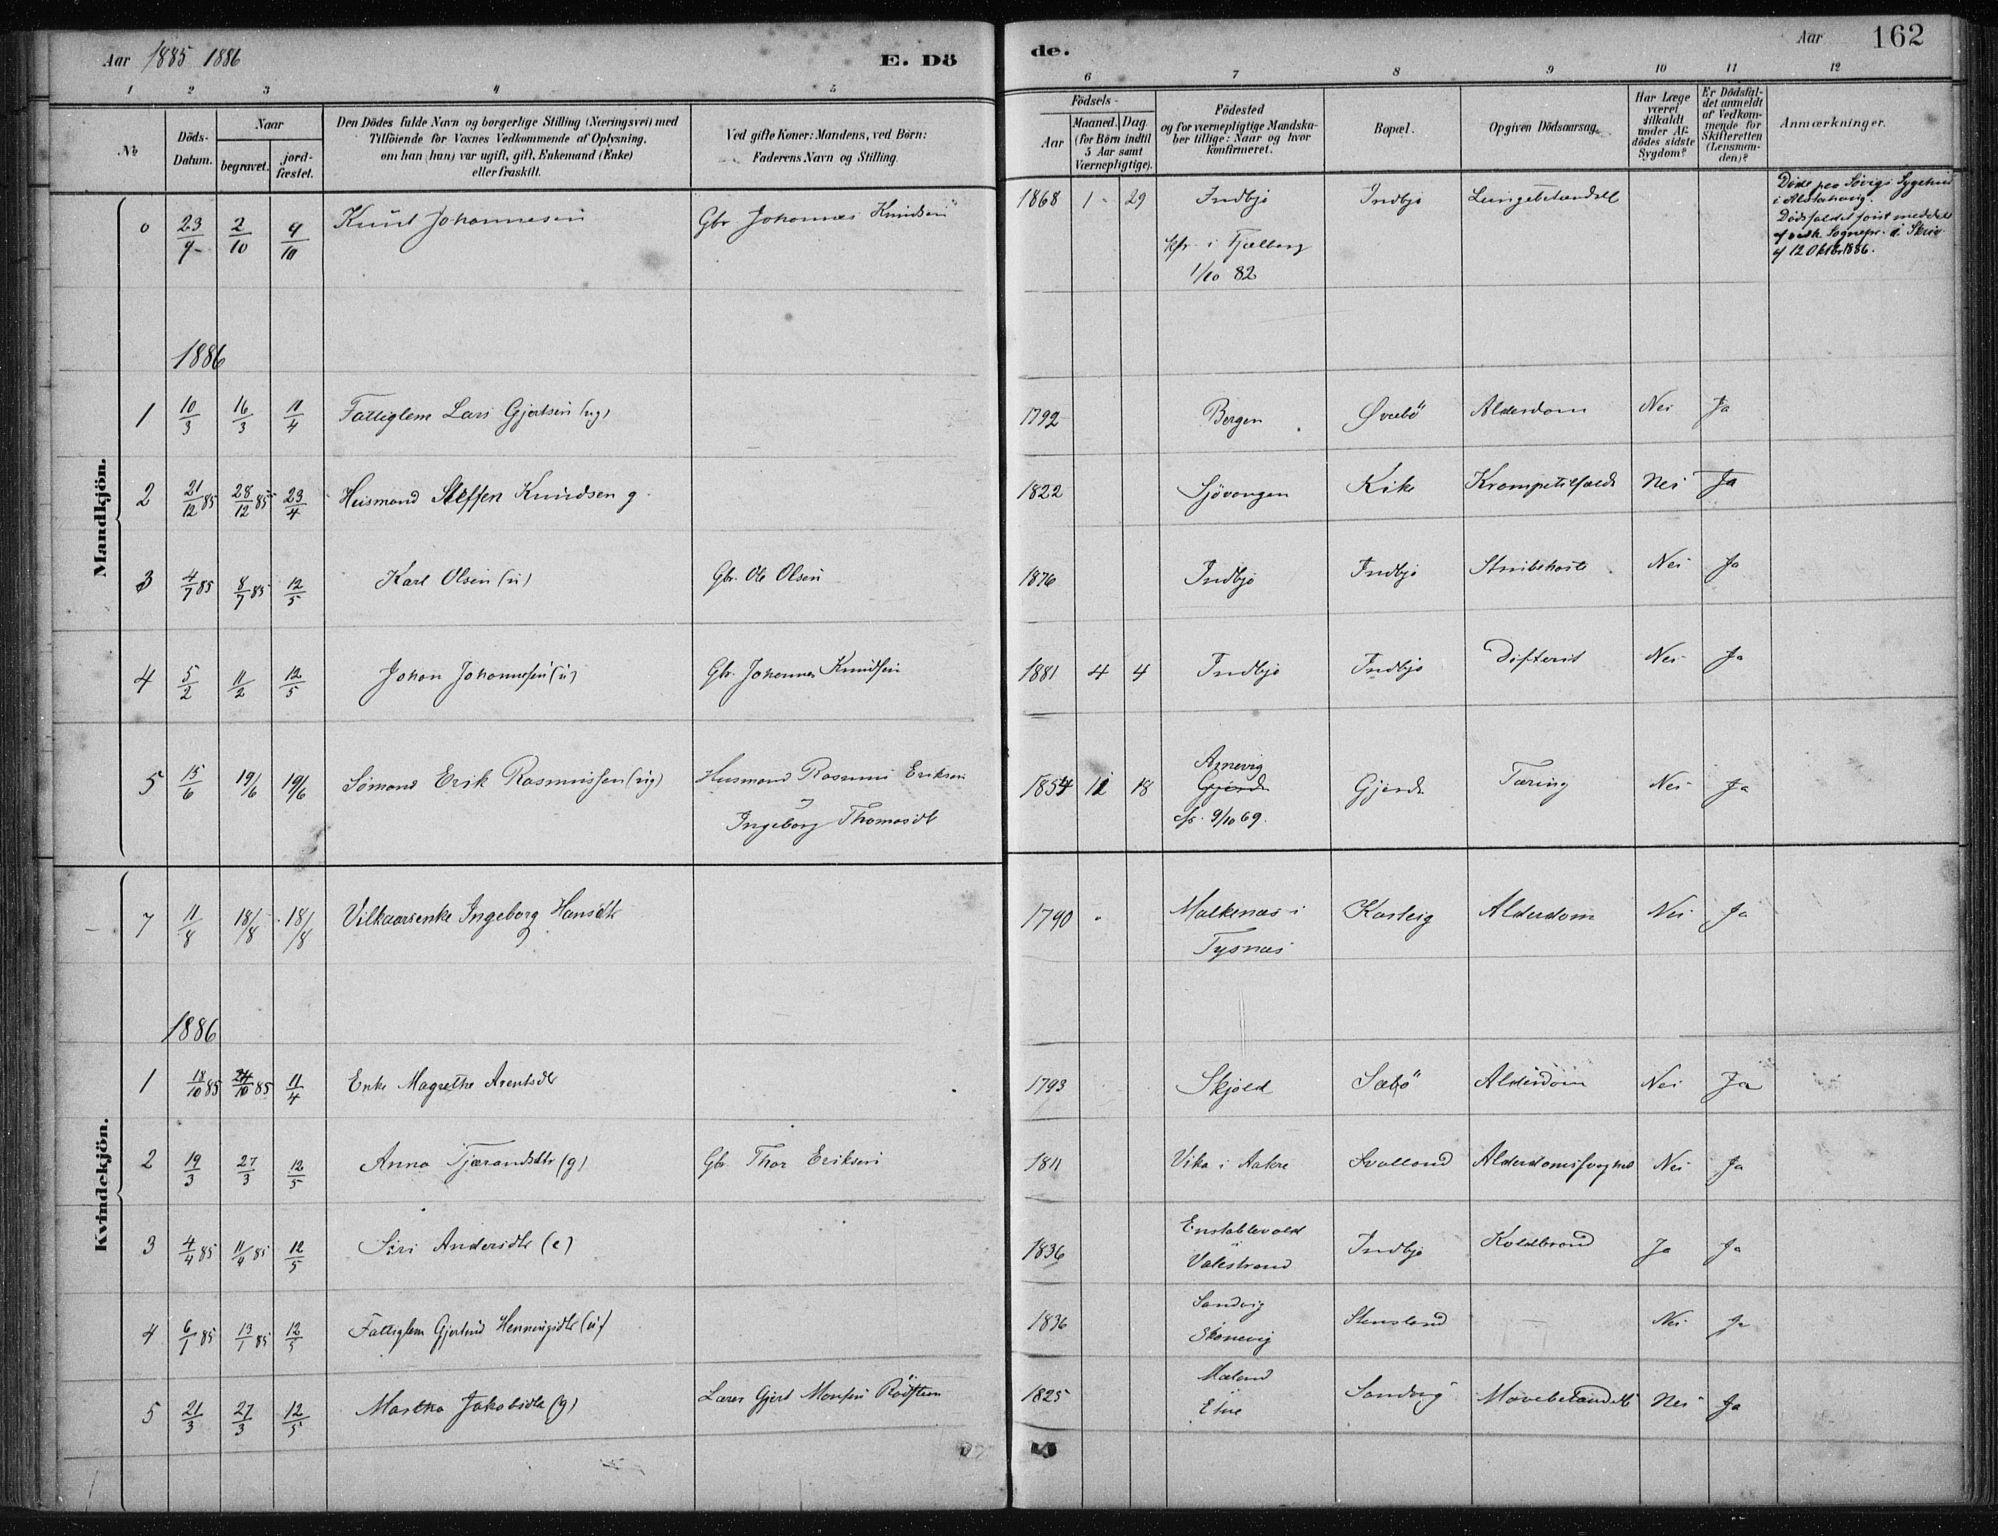 Aar 1885 1886 E. Dö de. Aar 162
1 2 3 4 5 6 7 8 9 10 11 12
№
Döds-Datum.
Naar
begravet.
jord-fæstet.
Den Dödes fulde Navn og borgerlige Stilling (Næringsvei) med
Tilföiende for Voxnes Vedkommende af Oplysning,
om han (hun) var ugift, gift, Enkemand (Enke)
eller fraskilt.
Ved gifte Koner: Mandens, ved Börn:
Faderens Navn og Stilling.
Födsels-
Aar
Maaned. Dag.
(for Börn indtil
5 Aar samt
Værnepligtige).
Födested
og for værnepligtige Mandska-
ber tillige: Naar og hvor
konfirmeret.
Bopæl.
Opgiven Dödsaarsag.
Har Læge
været
tilkaldt
under Af-
dödes sidste
Sygdom?
Er Dödsfal-
det anmeldt
af Vedkom-
mende for
Skifteretten
(Lensman-
den)?
Anmærkninger.
Mandkjön.
0 23/9 2/10 9/10 Knut Johannesen Gbr Johannes Knudsen 1868 1 29 Indbjo Indbjo Lungebetændelse
kfr. i Fjelberg
1/10 82
Döde paa Søvigs Sygehus
i Alstahaug.
Dödsfaldet først meddelt
af vedk. Sognepr. i Skriv
af 12 Oktbr 1886.
1886
1 10/3 16/3 11/4 Fattiglem Lars Gjertsen (ug) 1792 Bergen Øvrebö Alderdom Nei Ja
2 21/12 85 28/12 85 23/4 Husmand Steffen Knudsen g. 1822 Sjövangen Kike Krampetilfælde Nei Ja
3 4/7 85 8/7 85 12/5 Karl Olsen (u) Gbr. Ole Olsen 1876 Indbjo Indbjo Strubehoste Nei Ja
4 5/2 11/2 12/5 Johan Johannesen (u) Gbr. Johannes Knudsen 1881 4 4 Indbjo Indbjo Difterit Nei Ja
5 15/6 19/6 19/6 Sömand Erik Rasmussen (ug) Husmand Rasmus Eriksen 1854 12 18 Arnevig Gjerde Tæring Nei Ja
Gjerde
Ingeborg Thomasdtr cfr. 9/10 69.
Kvindekjön.
7 11/8 18/8 18/8 Vilkaarsenke Ingeborg Hansdtr 1790 Malkenæs i Karleig Alderdom Nei Ja
Tysnæs
1886
1 18/10 85 24/10 85 11/4 Enke Magrethe Arentsdtr 1793 Skjold Sæbö Alderdom Nei Ja
2 19/3 27/3 12/5 Anna Tjærandsdtr (g) Gbr Thor Eriksen 1811 Vika i Aakre Svolland Alderdomssvaghed Nei Ja
3 4/4 85 11/4 85 12/5 Siri Andersdtr (e) 1836 Enstablevold Indbjo Koldbrand Ja Ja
Valestrand
4 6/1 85 13/1 85 12/5 Fattiglem Gjertrud Henningsdtr (u) 1836 Sandvig Stensland Nei Ja
Skonevig
5 21/3 27/3 12/5 Martha Jakobsdtr (g) Lærer Gjert Monsen 1825 Mæland Sandvig Mavebetændelse Nei Ja
Etne